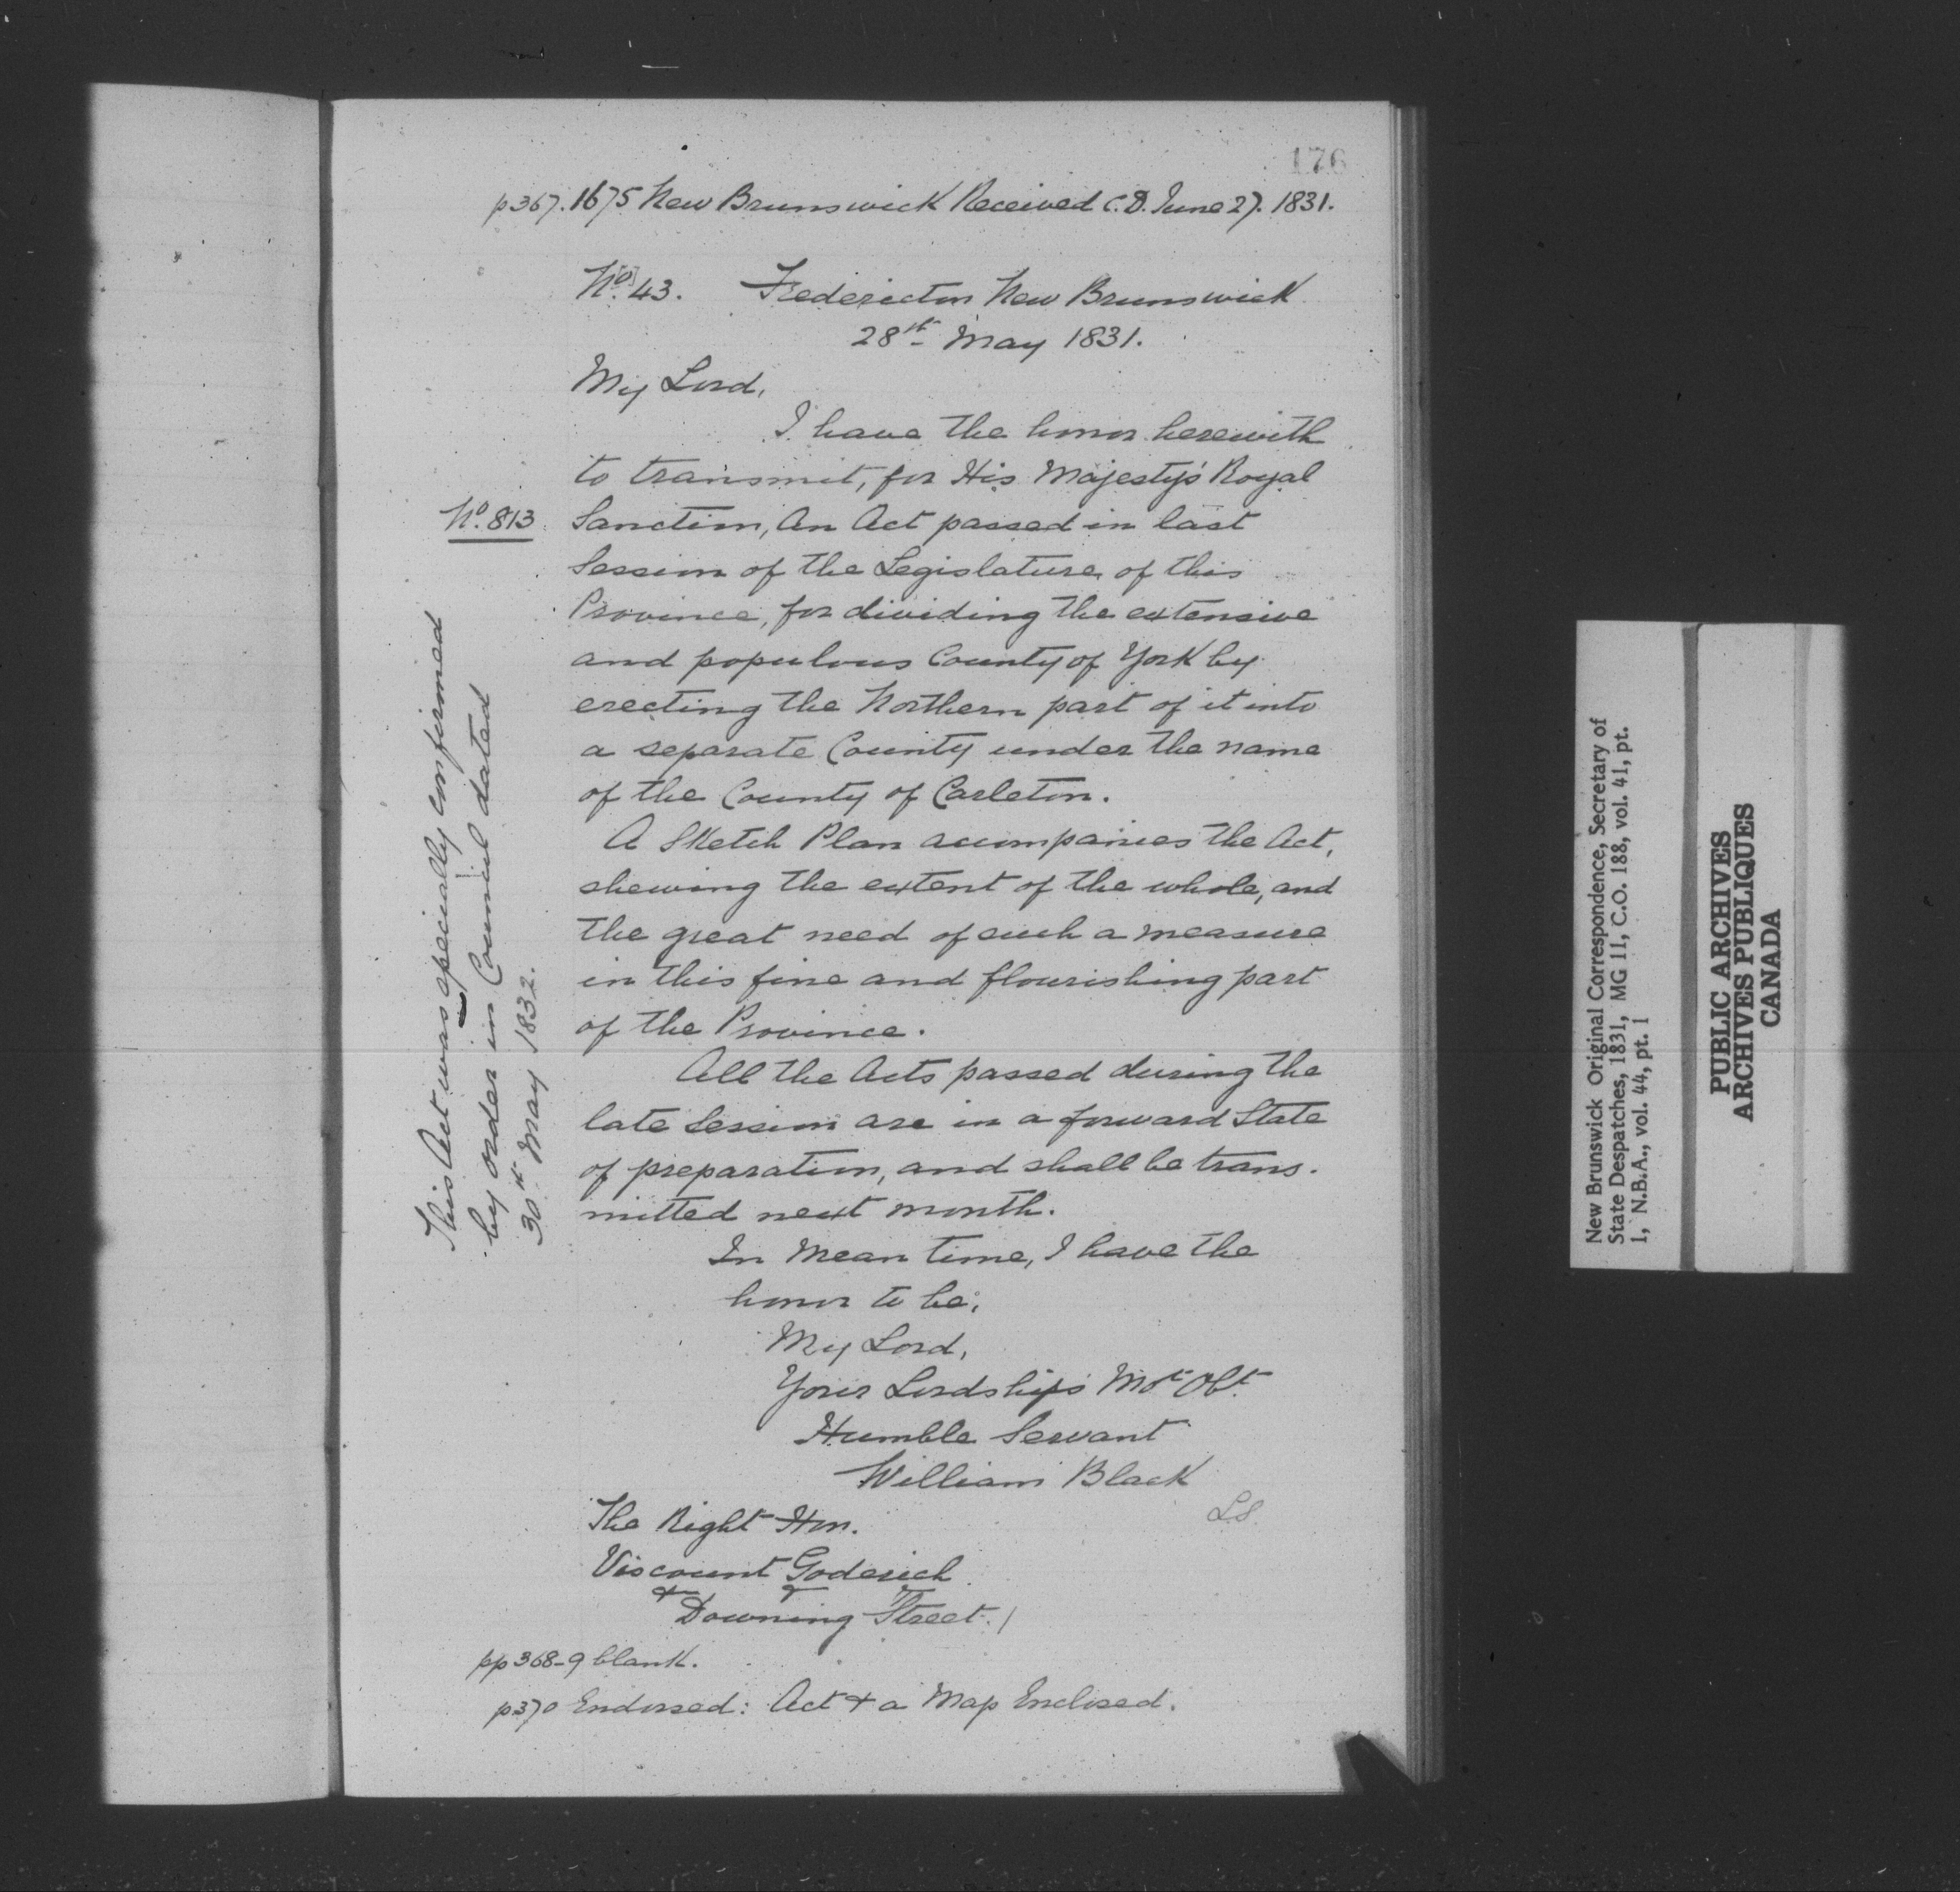 176
p367. 1675 New Brunswick Received C.D. June 27. 1831.
No. 43. Fredericton New Brunswick
28th May 1831.
My Lord,
I have the honor herewith
to transmit, for His Majesty's Royal
No. 813
Sanction, An Act passed in last
Session of the Legislature, of this
Province, for dividing the extensive
and populous County of York by
erecting the Northern part of it into
a separate County under the name
of the County of Carleton.
A Sketch Plan accompanies the Act,
shewing the extent of the whole, and
the great need of such a measure
in this fine and flourishing part
of the Province.
All the Acts passed during the
late Session are in a forward State
of preparation, and shall be trans-
mitted next month.
In Mean time, I have the
honor to be,
My Lord,
Your Lordship's Mot Obt
Humble Servant
William Black
LS.
The Right Hon.
Viscount Goderich
& & &
Downing Street.
pp 368-9 blank.
p370 Endorsed: Act & a Map Enclosed.
This Act was specially confirmed
by order in Council dated
30th May 1832.
New Brunswick Original Correspondence, Secretary of
State Despatches, 1831, MG 11, C.O. 188, vol. 41, pt.
1, N.B.A., vol. 44, pt. 1
PUBLIC ARCHIVES
ARCHIVES PUBLIQUES
CANADA